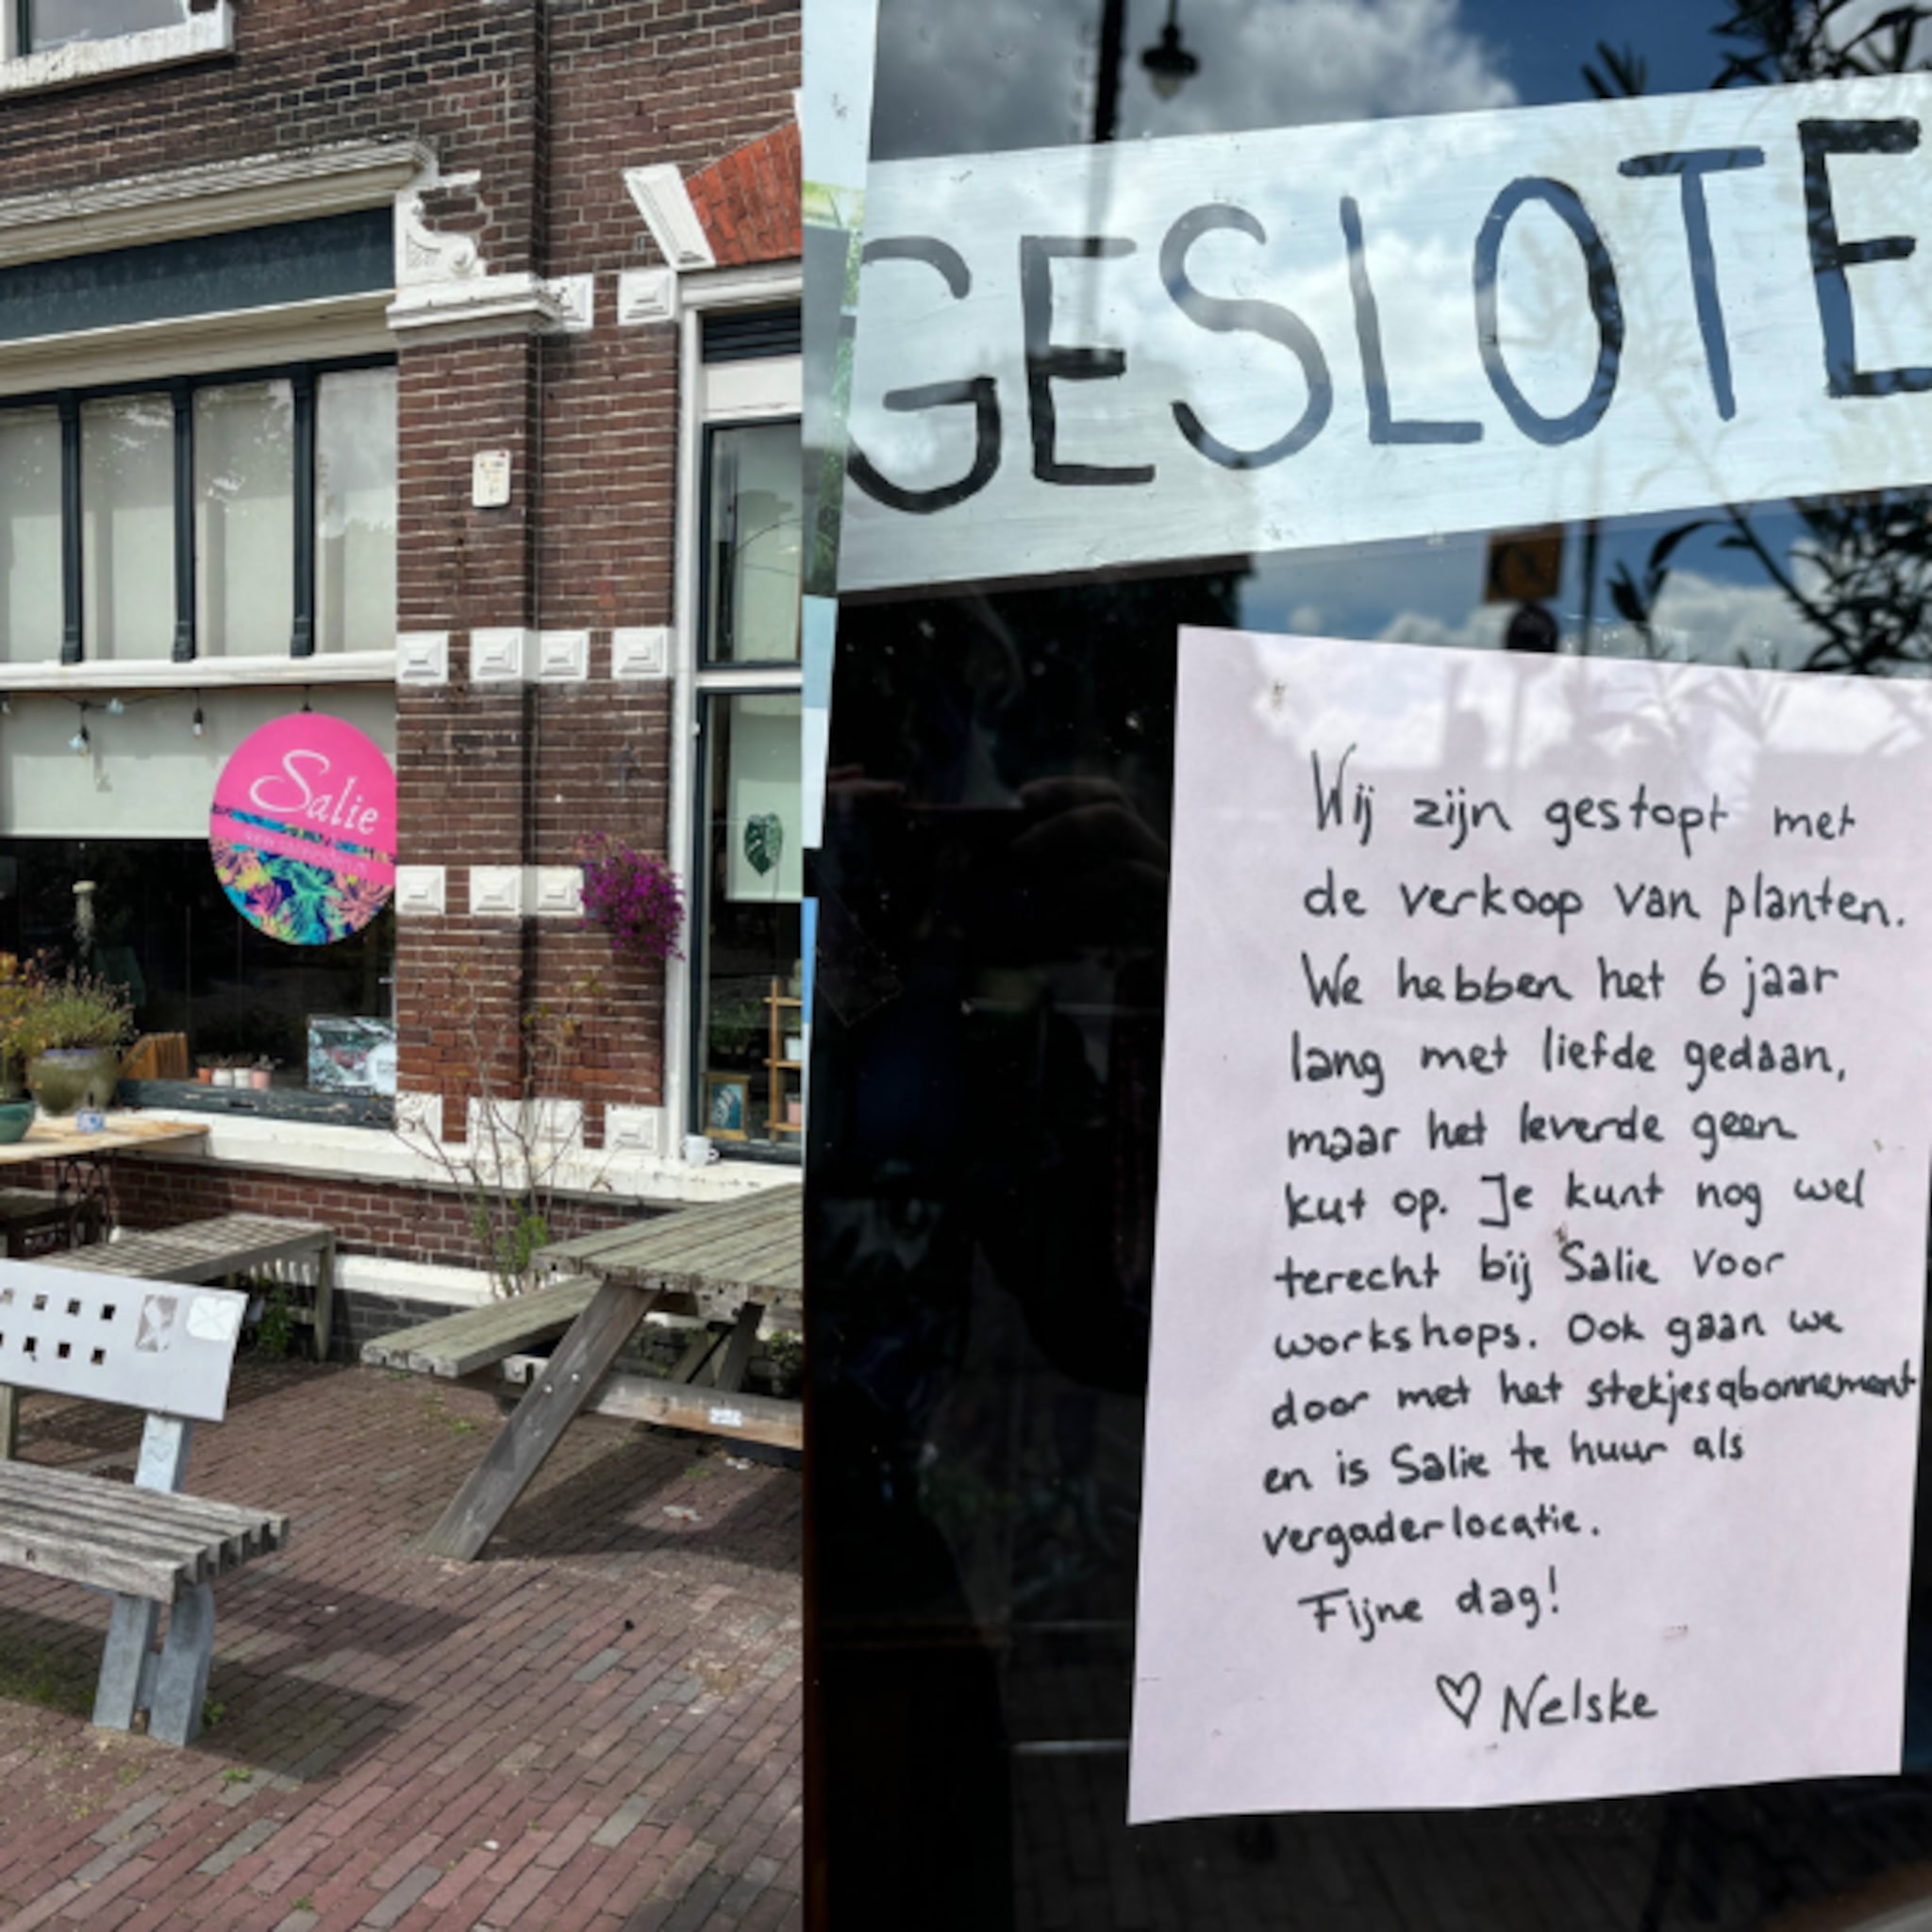 Salie
GESLOTE
Wij zijn gestopt met
de verkoop van planten.
We hebben het 6 jaar
lang met liefde gedaan,
maar het leverde geen
kut op. Je kunt nog wel
terecht bij Salie voor
workshops. Ook gaan we
door met het stekjesabonnement
en is Salie te huur als
vergaderlocatie.
Fijne dag!
♡ Nelske